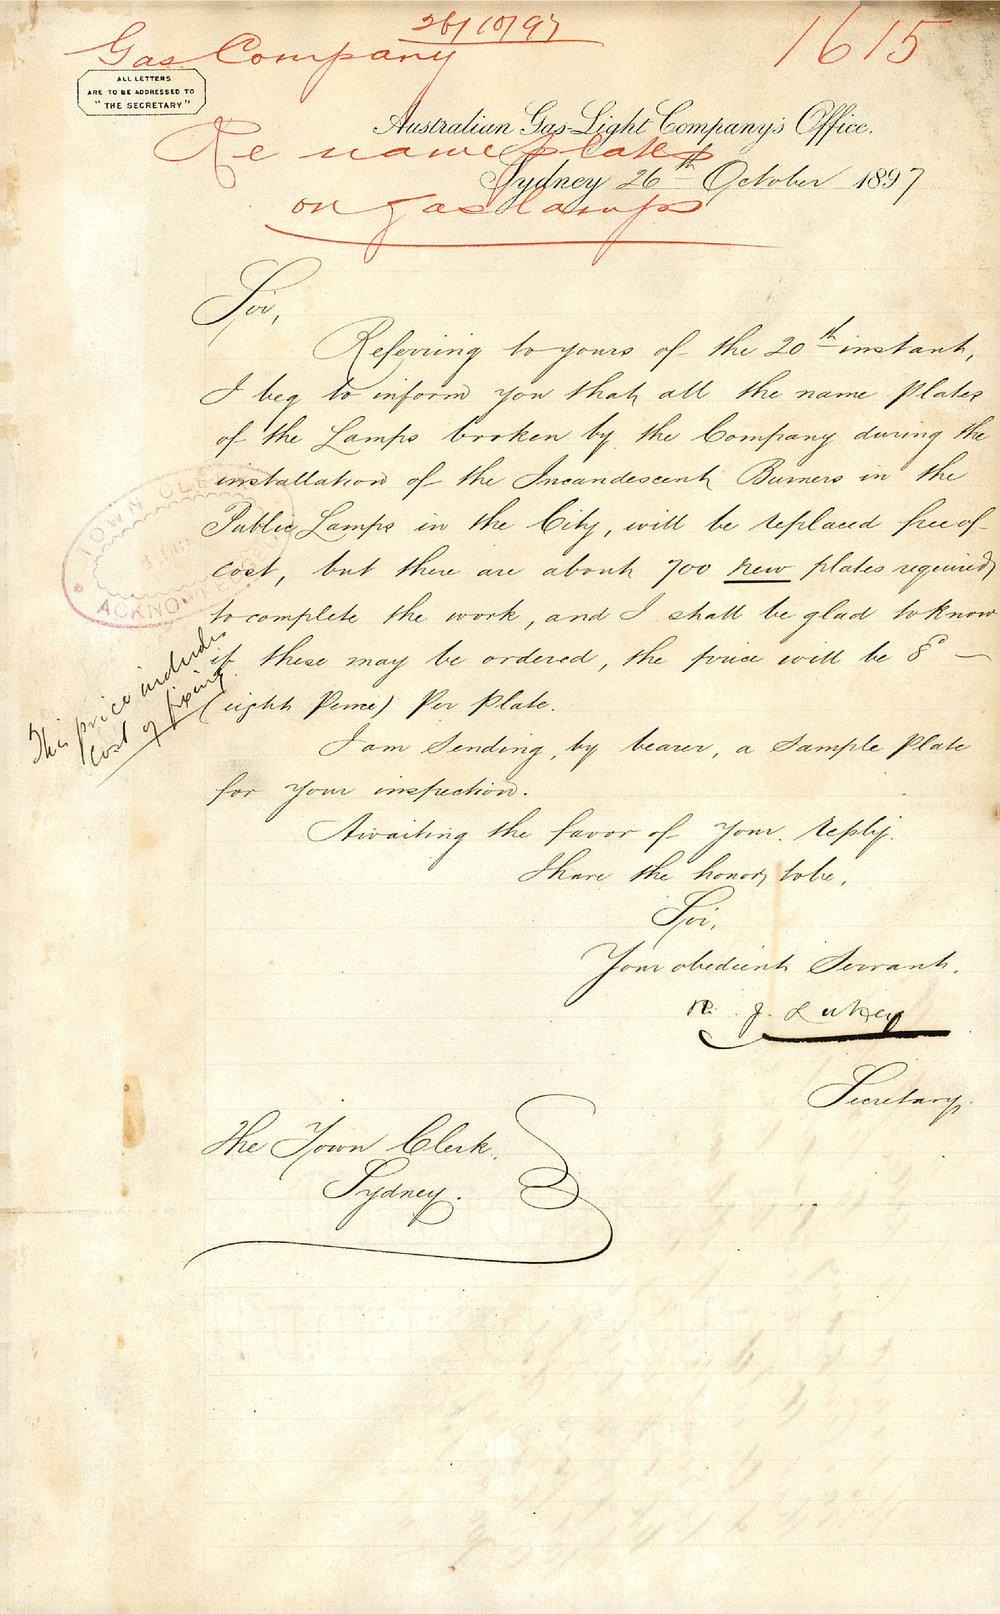 26/10/97
Gas Company
1615
ALL LETTERS
ARE TO BE ADDRESSED TO
"THE SECRETARY"
Australian Gas-Light Company's Office.
Re name plates
Sydney 26th October 1897
on gas lamps
Sir,
Referring to yours of the 20th instant,
I beg to inform you that all the name plates
of the Lamps broken by the Company during the
installation of the Incandescent Burners in the
Public Lamps in the City, will be replaced free of
cost, but there are about 700 new plates required
to complete the work, and I shall be glad to know
if these may be ordered, the price will be 8d —
(eight Pence) Per Plate.
This price includes
cost of fixing
I am sending, by bearer, a sample Plate
for your inspection.
Awaiting the favor of your reply.
I have the honor to be,
Sir,
Your obedient Servant.
R. J. Lukey
Secretary.
The Town Clerk.
Sydney.
TOWN CLERK
ACKNOWLEDGED